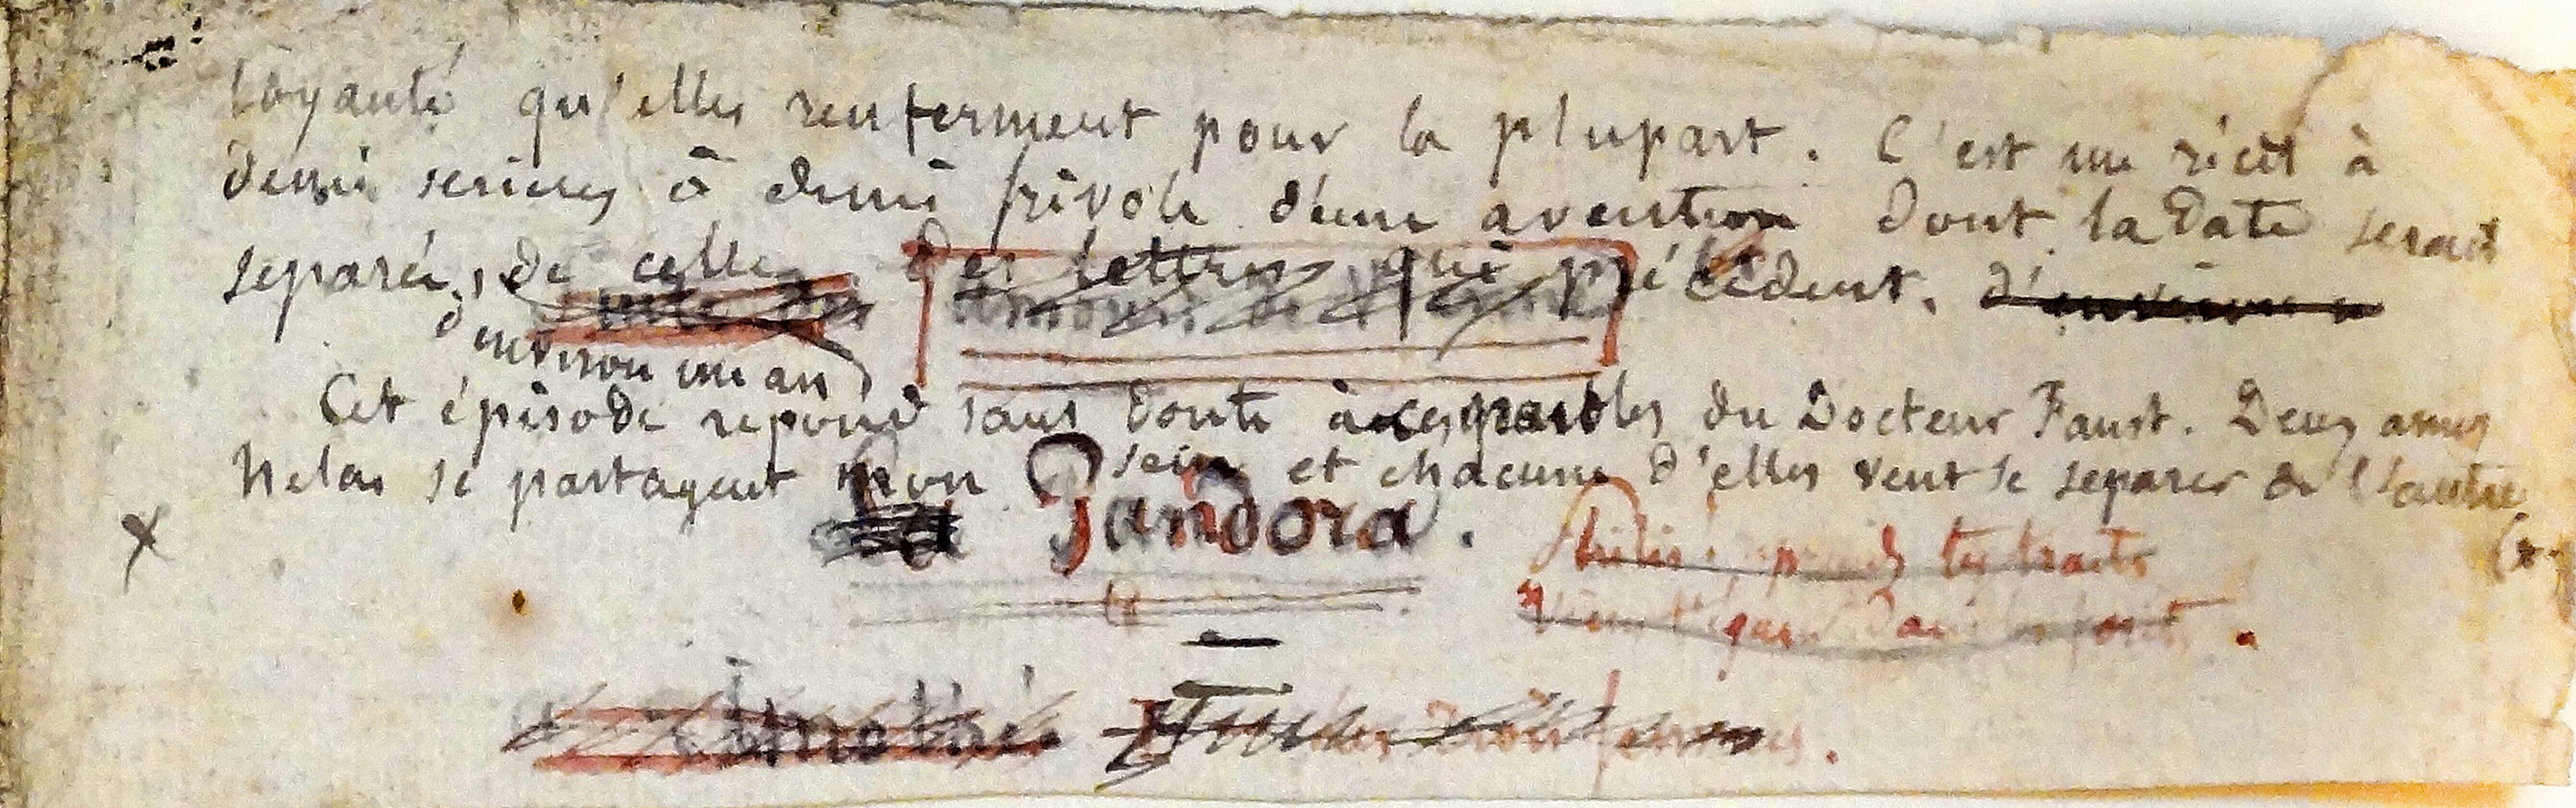 loyauté qu'elles renferment pour la plupart. C'est un récit à
demi serieux à demi frivole d'une aventure dont la date serait
separée, de celle des lettres qui précèdent. d'environ
d'environ un an
Cet épisode répond sans doute à ces paroles du Docteur Faust. Deux ames
Helas se partagent mon sein et chacune d'elles veut se separer de l'autre
x La Pandora.
prends tes traits
Timothée